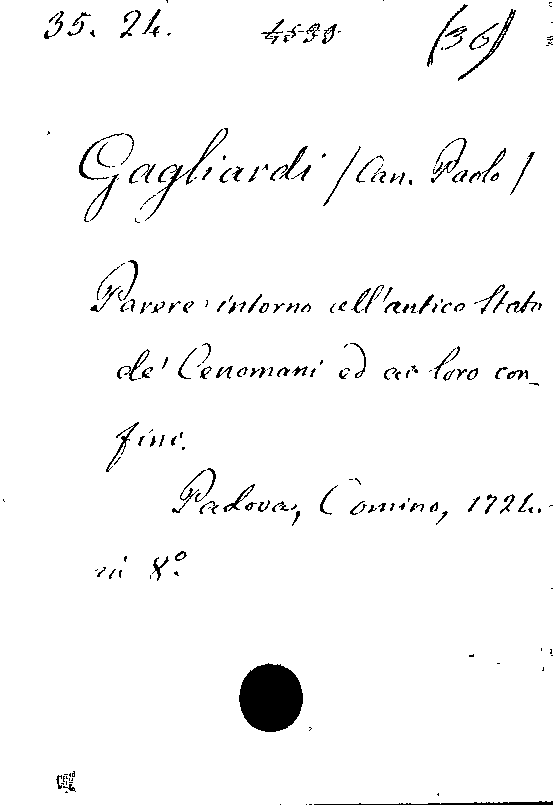 35. 24. 4539 (36)
Gagliardi /Can. Paolo/
Parere intorno all'antico Stato
de' Cenomani ed ai loro con_
fini.
Padova, Comino, 1724.
in 8º.